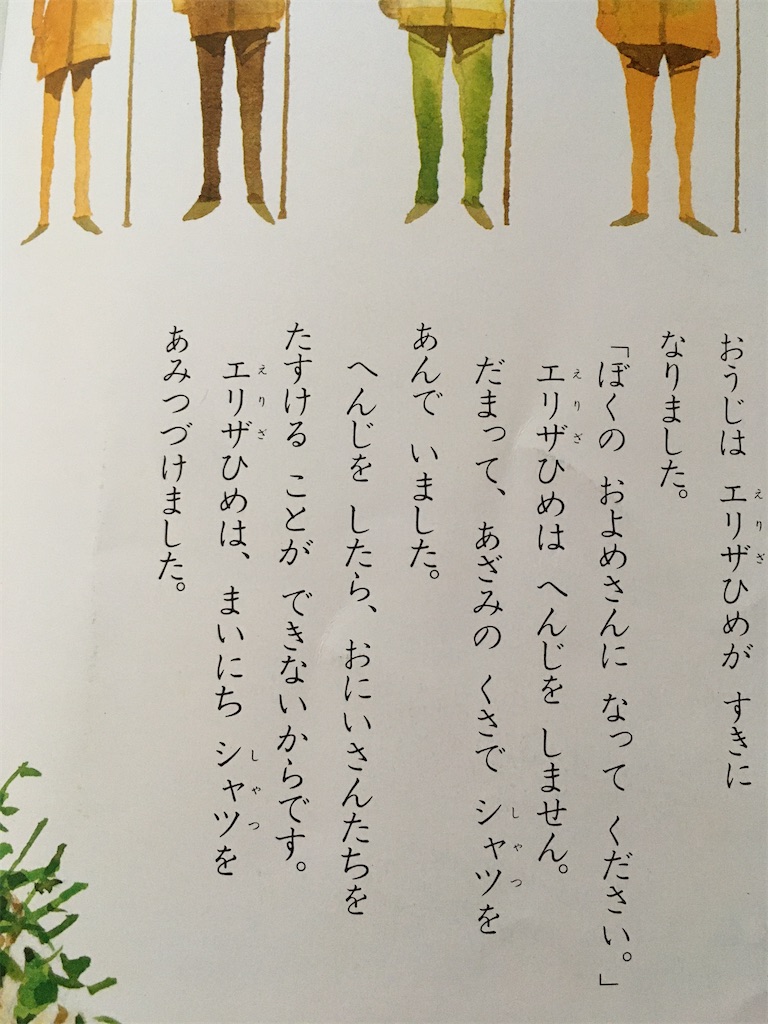 おうじは エリザひめが すきに
なりました。
「ぼくの およめさんに なって ください。」
エリザひめは へんじを しません。
だまって、あざみの くさで シャツを
あんで いました。
へんじを したら、おにいさんたちを
たすける ことが できないからです。
エリザひめは、まいにち シャツを
あみつづけました。